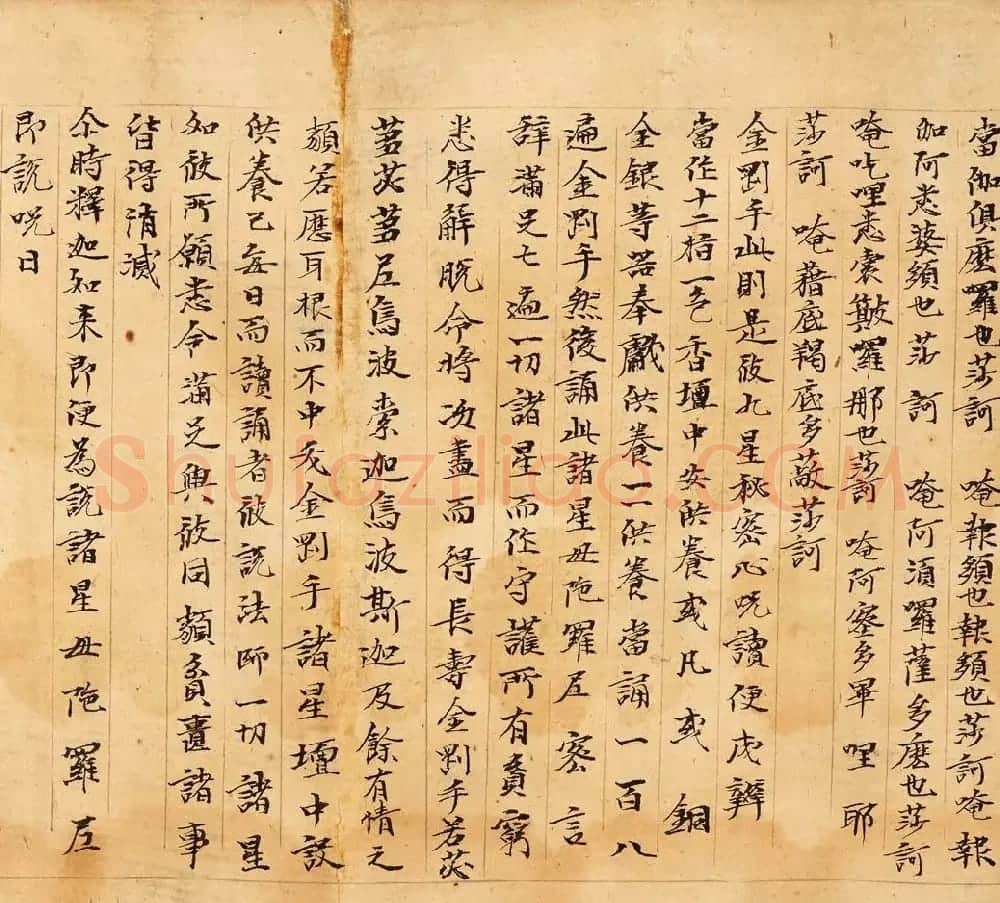 當伽俱麼羅也莎訶　唵報頞也報頞也莎訶唵報
伽阿悉婆頞也莎訶　唵阿湏羅薩多麼也莎訶
唵吃哩悉裳皺囉那也莎訶　唵阿蜜多畢哩耶
莎訶　唵藉底羯底多蔽莎訶
金剛手此則是彼九星秘密心呪讀便成辦
當作十二指一色香壇中安供養或凡或銅
金銀等器奉獻供養一一供養當誦一百八
遍金剛手然後誦此諸星母陁羅尼密言
辞滿足七遍一切諸星而作守護所有貧窮
悉得解脫命將次盡而得長壽金剛手若苾
蒭苾蒭尼鳥波索迦鳥波斯迦及餘有情之
類若應耳根而不中夭金剛手諸星壇中設
供養已每日而讀誦者彼說法師一切諸星
如彼所願悉令滿足與彼同類貧遺諸事
皆得消滅
尒時釋迦如来即便為說諸星母陁羅尼
即說呪曰
Shufaziliao.COM